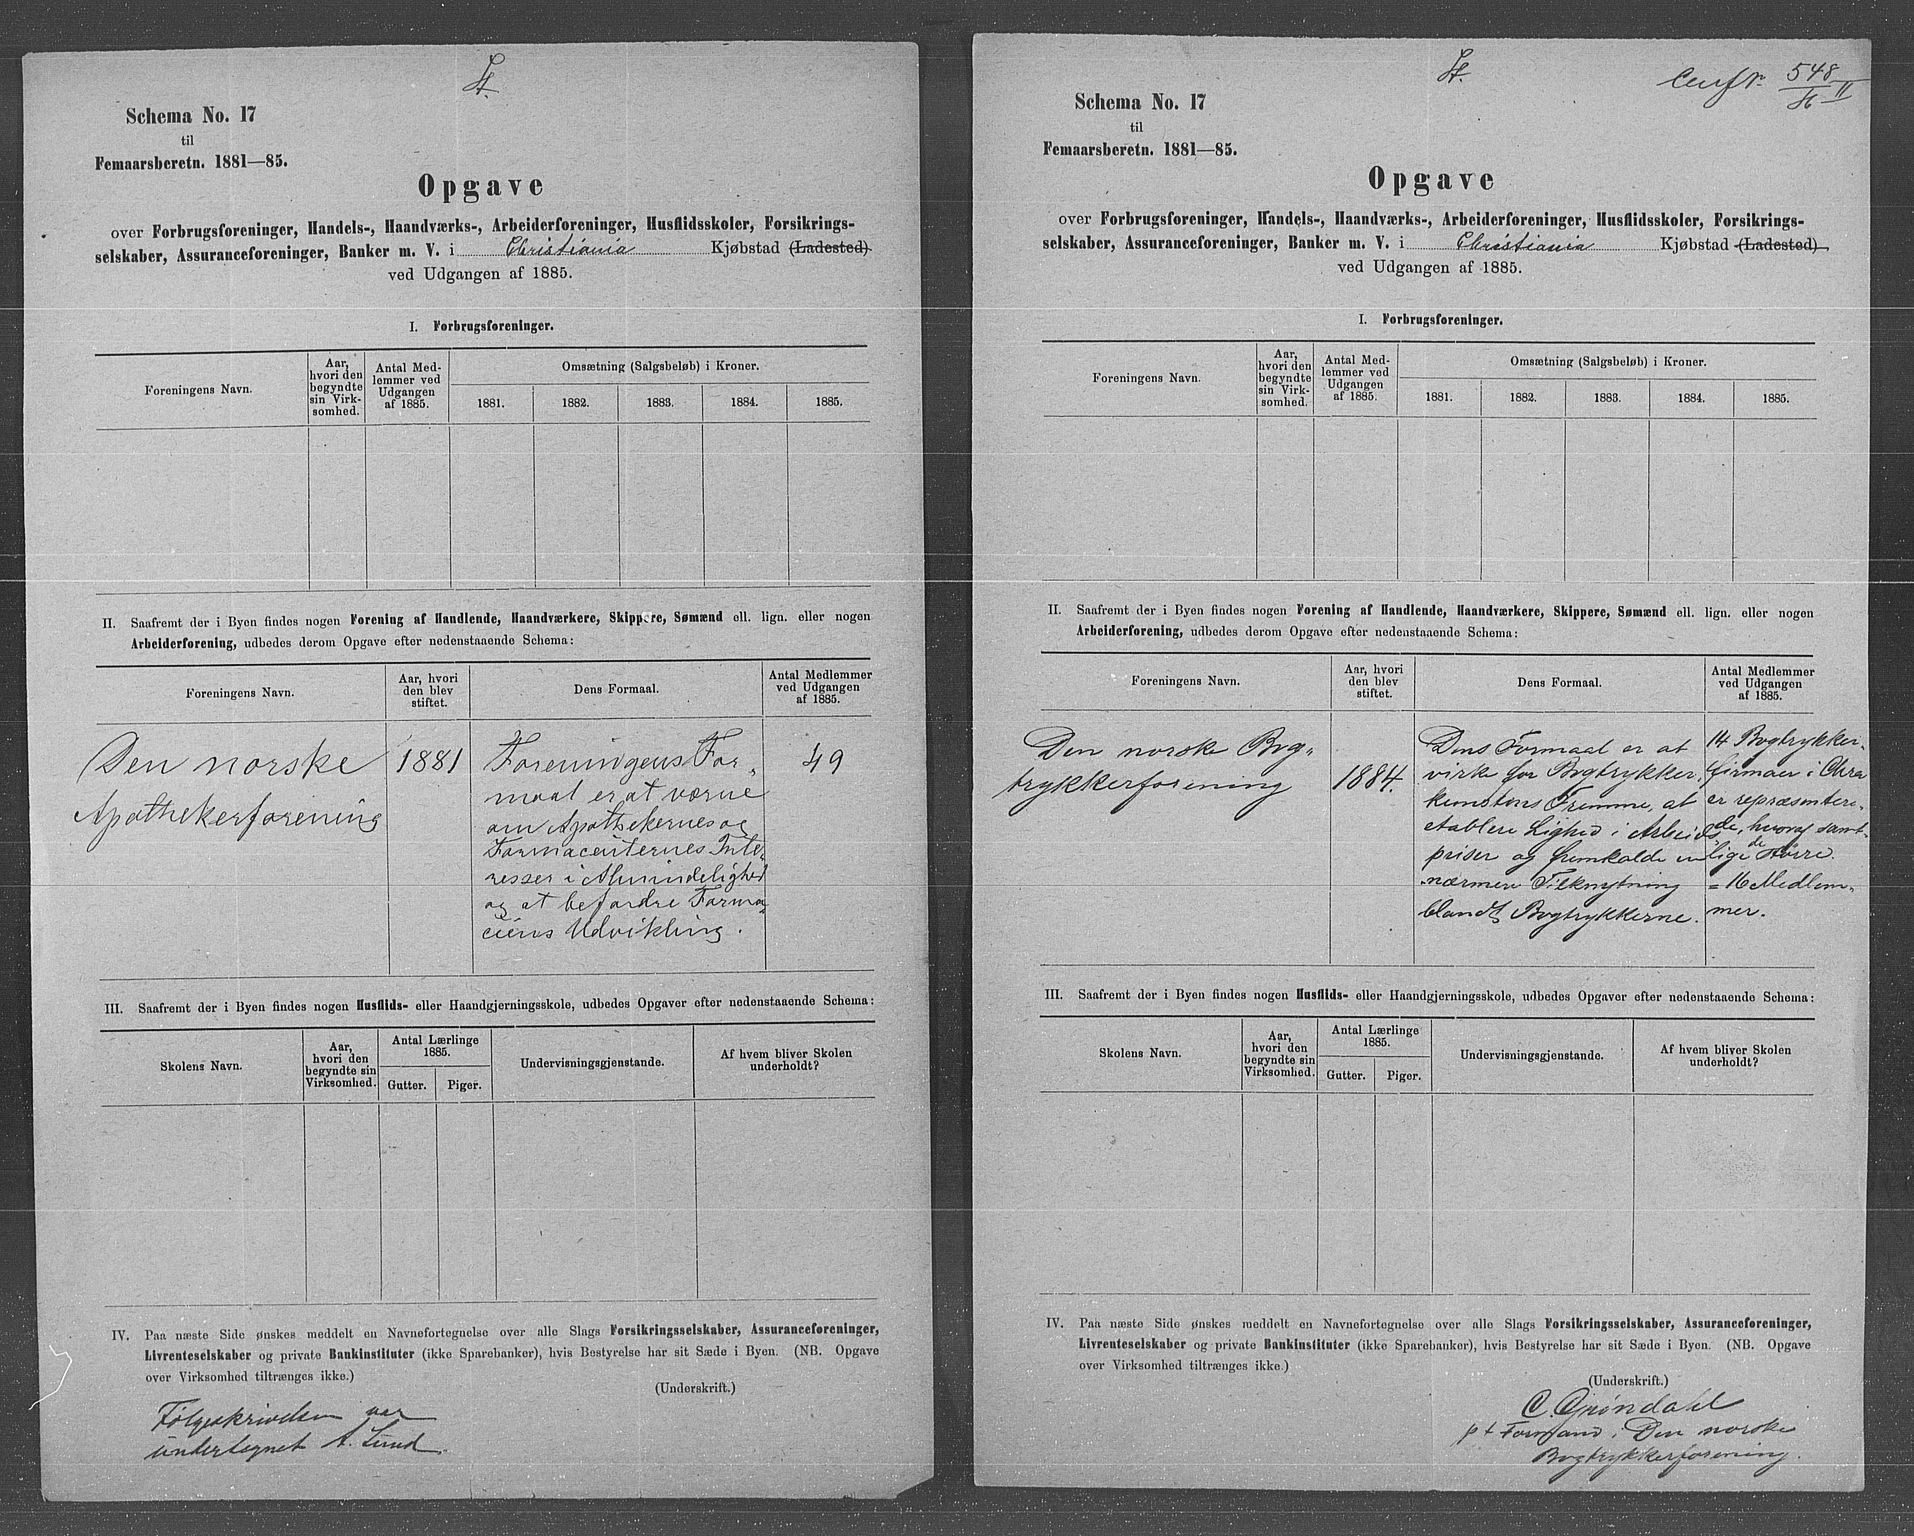 St.
Schema No. 17
til
Femaarsberetn. 1881—85.
Opgave
over Forbrugsforeninger, Handels-, Haandværks-, Arbeiderforeninger, Husflidsskoler, Forsikrings-
selskaber, Assuranceforeninger, Banker m. V. i Christiania Kjøbstad (Ladested)
ved Udgangen af 1885.
I. Forbrugsforeninger.
Foreningens Navn.
Aar,
hvori den
begyndte
sin Virk-
somhed.
Antal Med-
lemmer ved
Udgangen
af 1885.
Omsætning (Salgsbeløb) i Kroner.
1881. 1882. 1883. 1884. 1885.
II. Saafremt der i Byen findes nogen Forening af Handlende, Haandværkere, Skippere, Sømænd ell. lign. eller nogen
Arbeiderforening, udbedes derom Opgave efter nedenstaaende Schema:
Foreningens Navn.
Aar, hvori
den blev
stiftet.
Dens Formaal.
Antal Medlemmer
ved Udgangen
af 1885.
Den norske
Apothekerforening
1881
Foreningens For-
maal er at værne
om Apothekernes og
Farmaceuternes Inte-
resser i Almindelighed
og at befordre Farma-
ciens Udvikling.
49
III. Saafremt der i Byen findes nogen Husflids- eller Haandgjerningsskole, udbedes Opgaver efter nedenstaaende Schema:
Skolens Navn.
Aar,
hvori den
begyndte sin
Virksomhed.
Antal Lærlinge
1885.
Gutter. Piger.
Undervisningsgjenstande.
Af hvem bliver Skolen
underholdt?
IV. Paa næste Side ønskes meddelt en Navnefortegnelse over alle Slags Forsikringsselskaber, Assuranceforeninger,
Livrenteselskaber og private Bankinstituter (ikke Sparebanker), hvis Bestyrelse har sit Sæde i Byen. (NB. Opgave
over Virksomhed tiltrænges ikke.)
(Underskrift.)
Følgeskrivelsen var
undertegnet A. Lund.
St.
548
II
Schema No. 17
til
Femaarsberetn. 1881—85.
Opgave
over Forbrugsforeninger, Handels-, Haandværks-, Arbeiderforeninger, Husflidsskoler, Forsikrings-
selskaber, Assuranceforeninger, Banker m. V. i Christiania Kjøbstad (Ladested)
ved Udgangen af 1885.
I. Forbrugsforeninger.
Foreningens Navn.
Aar,
hvori den
begyndte
sin Virk-
somhed.
Antal Med-
lemmer ved
Udgangen
af 1885.
Omsætning (Salgsbeløb) i Kroner.
1881. 1882. 1883. 1884. 1885.
II. Saafremt der i Byen findes nogen Forening af Handlende, Haandværkere, Skippere, Sømænd ell. lign. eller nogen
Arbeiderforening, udbedes derom Opgave efter nedenstaaende Schema:
Foreningens Navn.
Aar, hvori
den blev
stiftet.
Dens Formaal.
Antal Medlemmer
ved Udgangen
af 1885.
Den norske Bog-
trykkerforening
1884.
Dens Formaal er at
virke for Bogtrykker-
kunstens Fremme, at
etablere Lighed i Arbeids-
priser og fremkalde en
nærmere Tilknytning
blandt Bogtrykkerne.
14 Bogtrykker-
firmaer i Chra
er repræsentere-
de, hvoraf samt-
lige de større.
= 16 Medlem-
mer.
III. Saafremt der i Byen findes nogen Husflids- eller Haandgjerningsskole, udbedes Opgaver efter nedenstaaende Schema:
Skolens Navn.
Aar,
hvori den
begyndte sin
Virksomhed.
Antal Lærlinge
1885.
Gutter. Piger.
Undervisningsgjenstande.
Af hvem bliver Skolen
underholdt?
IV. Paa næste Side ønskes meddelt en Navnefortegnelse over alle Slags Forsikringsselskaber, Assuranceforeninger,
Livrenteselskaber og private Bankinstituter (ikke Sparebanker), hvis Bestyrelse har sit Sæde i Byen. (NB. Opgave
over Virksomhed tiltrænges ikke.)
(Underskrift.)
C. Grøndahl
pt Formand i Den norske
Bogtrykkerforening.